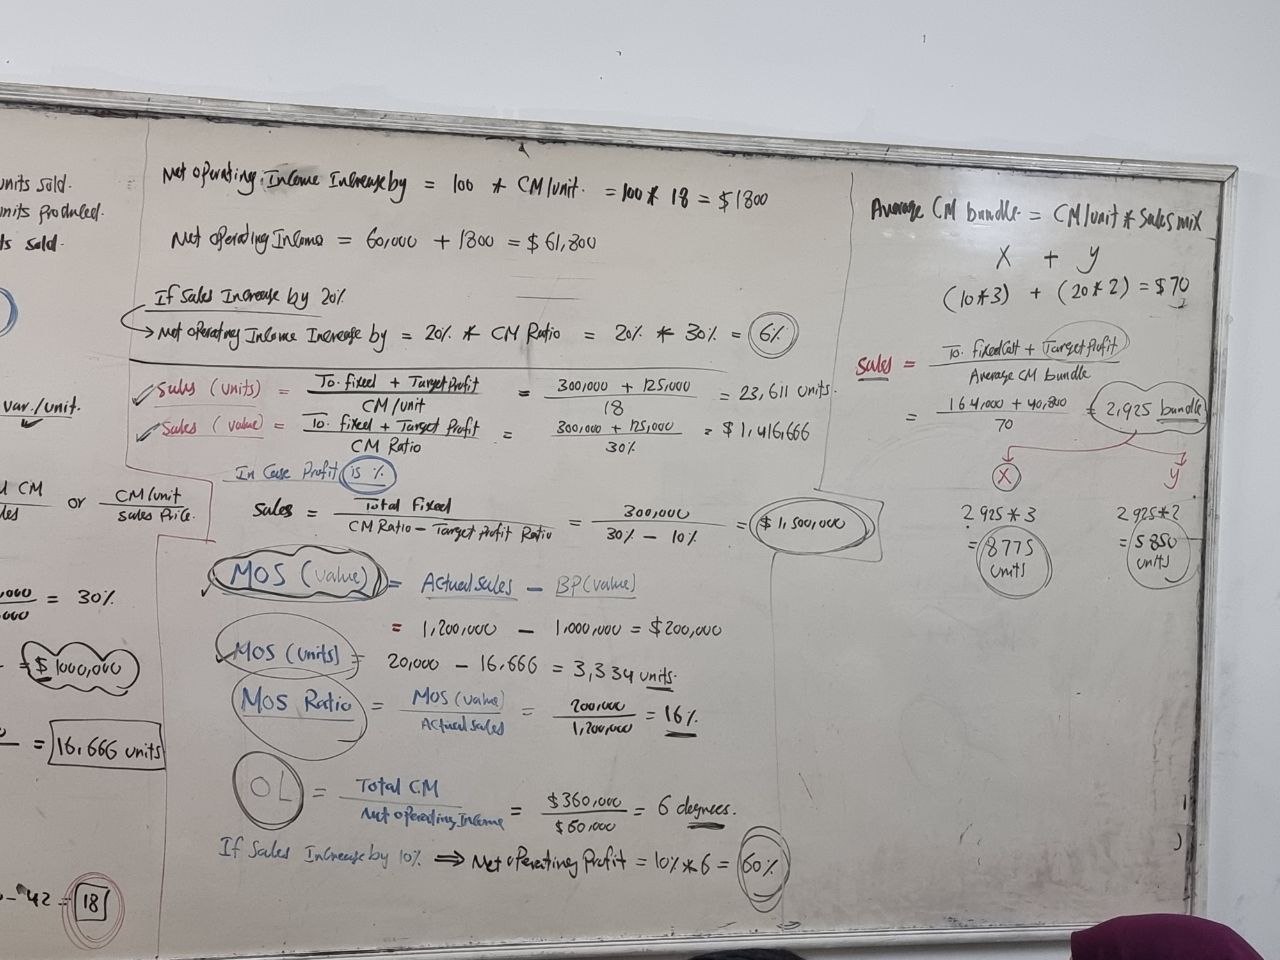 units sold.
units produced.
ts sold.
var./unit.
CM or CM/unit
les sales Price.
,000 = 30%
000
= $1000,000
= 16,666 units
- 42 = 18
Net operating Income Increase by = 100 * CM/unit. = 100 * 18 = $1800
Net operating Income = 60,000 + 1800 = $61,800
If Sales Increase by 20%
→ Net operating Income Increase by = 20% * CM Ratio = 20% * 30% = 6%
Sales (units) = To. fixed + Target Profit / CM/unit = 300,000 + 125,000 / 18 = 23,611 units.
Sales (value) = To. fixed + Target Profit / CM Ratio = 300,000 + 125,000 / 30% = $1,416,666
In Case Profit is %
Sales = Total fixed / CM Ratio – Target Profit Ratio = 300,000 / 30% – 10% = $1,500,000
MOS (value) = Actual sales – BP (value)
= 1,200,000 – 1,000,000 = $200,000
MOS (units) = 20,000 – 16,666 = 3,334 units.
MOS Ratio = MOS (value) / Actual sales = 200,000 / 1,200,000 = 16%
OL = Total CM / Net operating Income = $360,000 / $60,000 = 6 degrees.
If Sales Increase by 10% ⇒ Net operating Profit = 10% * 6 = 60%
Average CM bundle = CM/unit * Sales mix
X + y
(10*3) + (20*2) = $70
Sales = To. fixed Cost + Target Profit / Average CM bundle
= 164,000 + 40,800 / 70 = 2,925 bundle
X y
2925*3 2925*2
= 8775 = 5850
units units